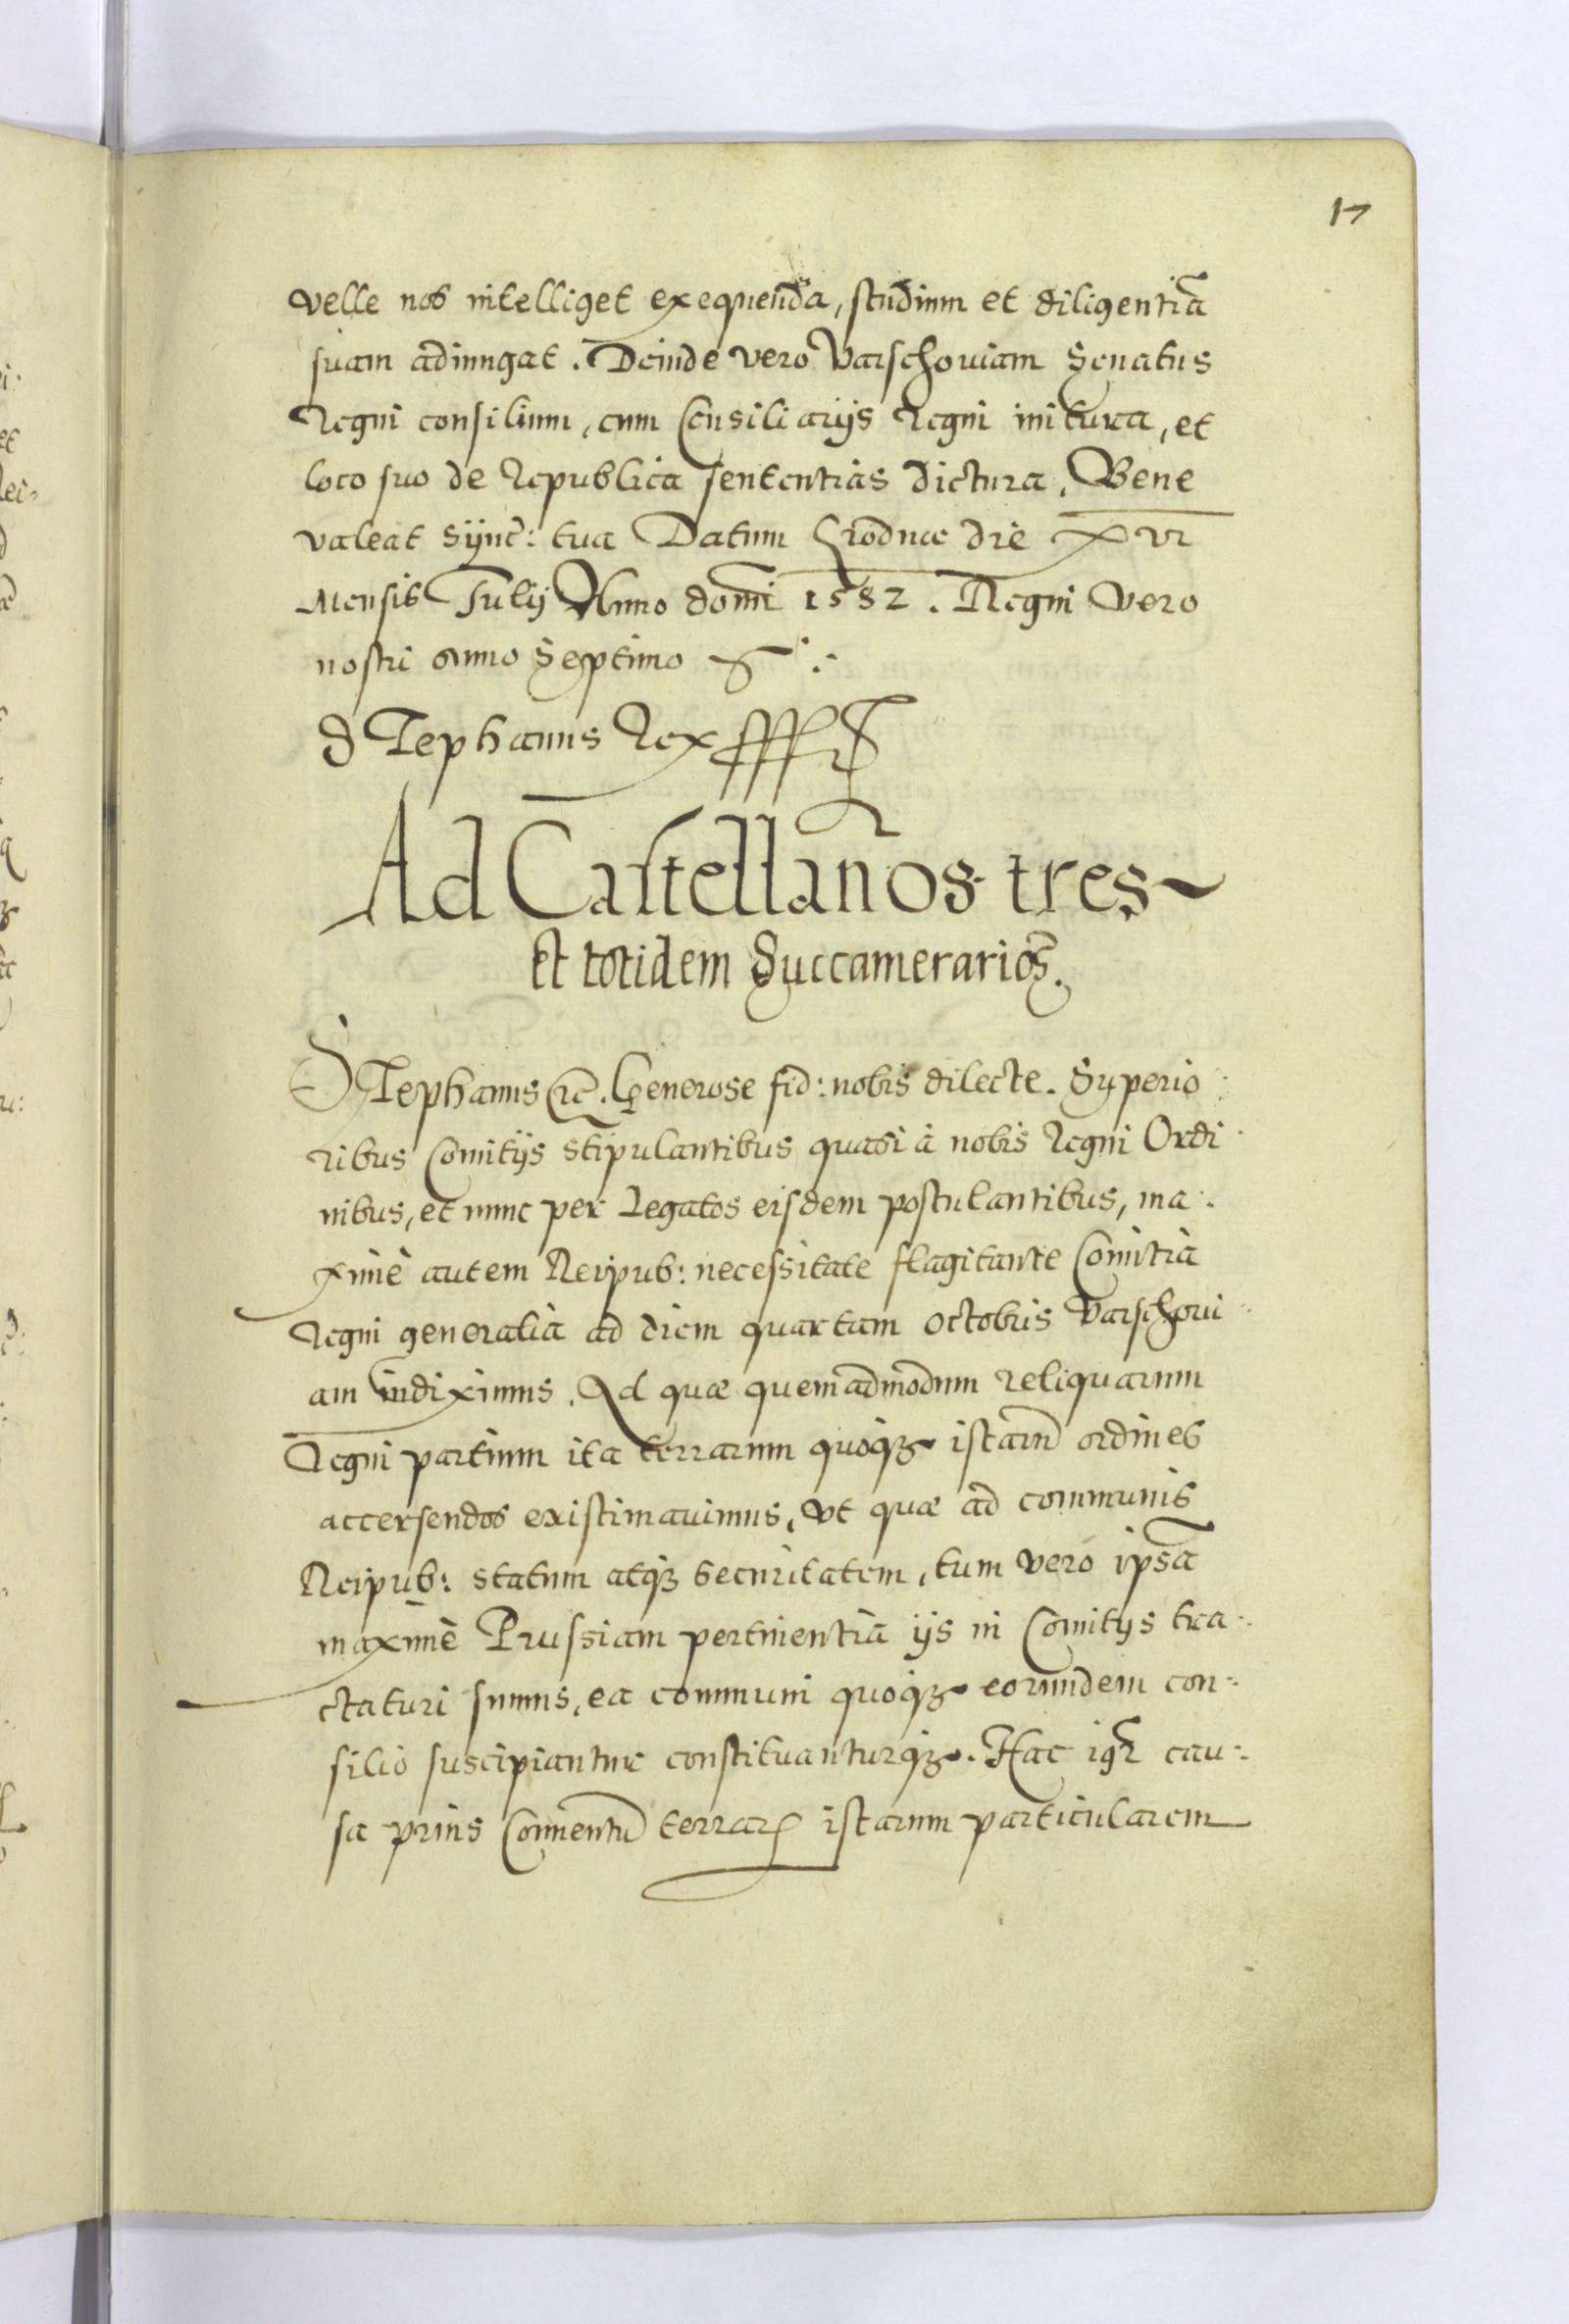 17
velle nos intelliget exequenda, studium et diligentiā
suam adiungat. Deinde vero Varschoviam Senatus
Regni consilium, cum Consiliarijs Regni initura, et
loco suo de Republica sententias dictura. Bene
valeat Sync: tua Datum Grodnæ die XVI
Mensis Julij Anno domī 1582. Regni vero
nostri anno Septimo
Stephanus Rex
Ad Castellanos tres
Et totidem Succamerarios.
Stephanus etc. Generose fid: nobis dilecte. Superio
ribus Comitijs stipulantibus quasi à nobis Regni Ordi
nibus, et nunc per Legatos eisdem postulantibus, ma
ximè autem Reipub: necessitate flagitante Comitia
Regni generalia ad diem quartam octobris Varschovi
am indiximus. Ad quæ quemadmodum reliquarum
Regni partium ita terrarum quoqꝫ istarū ordines
accersendos existimavimus, vt quæ ad communis
Reipub: statum atqꝫ securitatem, tum vero ipsā
maximè Prussiam pertinentia ijs in Comitijs tra
ctaturi sumus, ea communi quoqꝫ eorundem con
silio suscipiantur constituanturqꝫ. Hac igr̄ cau
sa prius Conuentū terrarꝝ istarum particularem